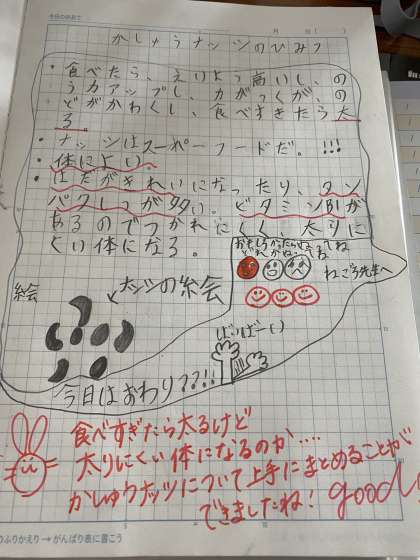 今日のめあて
月 日( )
かしゅうナッツのひみつ
・食べたら、えいよう高いし、の
う力アップし、力がつくが、の
どがかわくし、食べすぎたら太
る。
・ナッツはスーパーフードだ。!!!
・体によい。
・はだがきれいになったり、タン
パクしつが多い。ビタミンB1が
あるのでつかれにくく、太りに
くい体になる。
おもしろかったらいろ
ねごろ先生へ
絵会
ナッツの絵会
ばいばーい
今日はおわり??!!
食べすぎたら太るけど
太りにくい体になるのか‥‥
かしゅうナッツについて上手にまとめることが
できましたね! good
ふりかえり→がんばり表に書こう